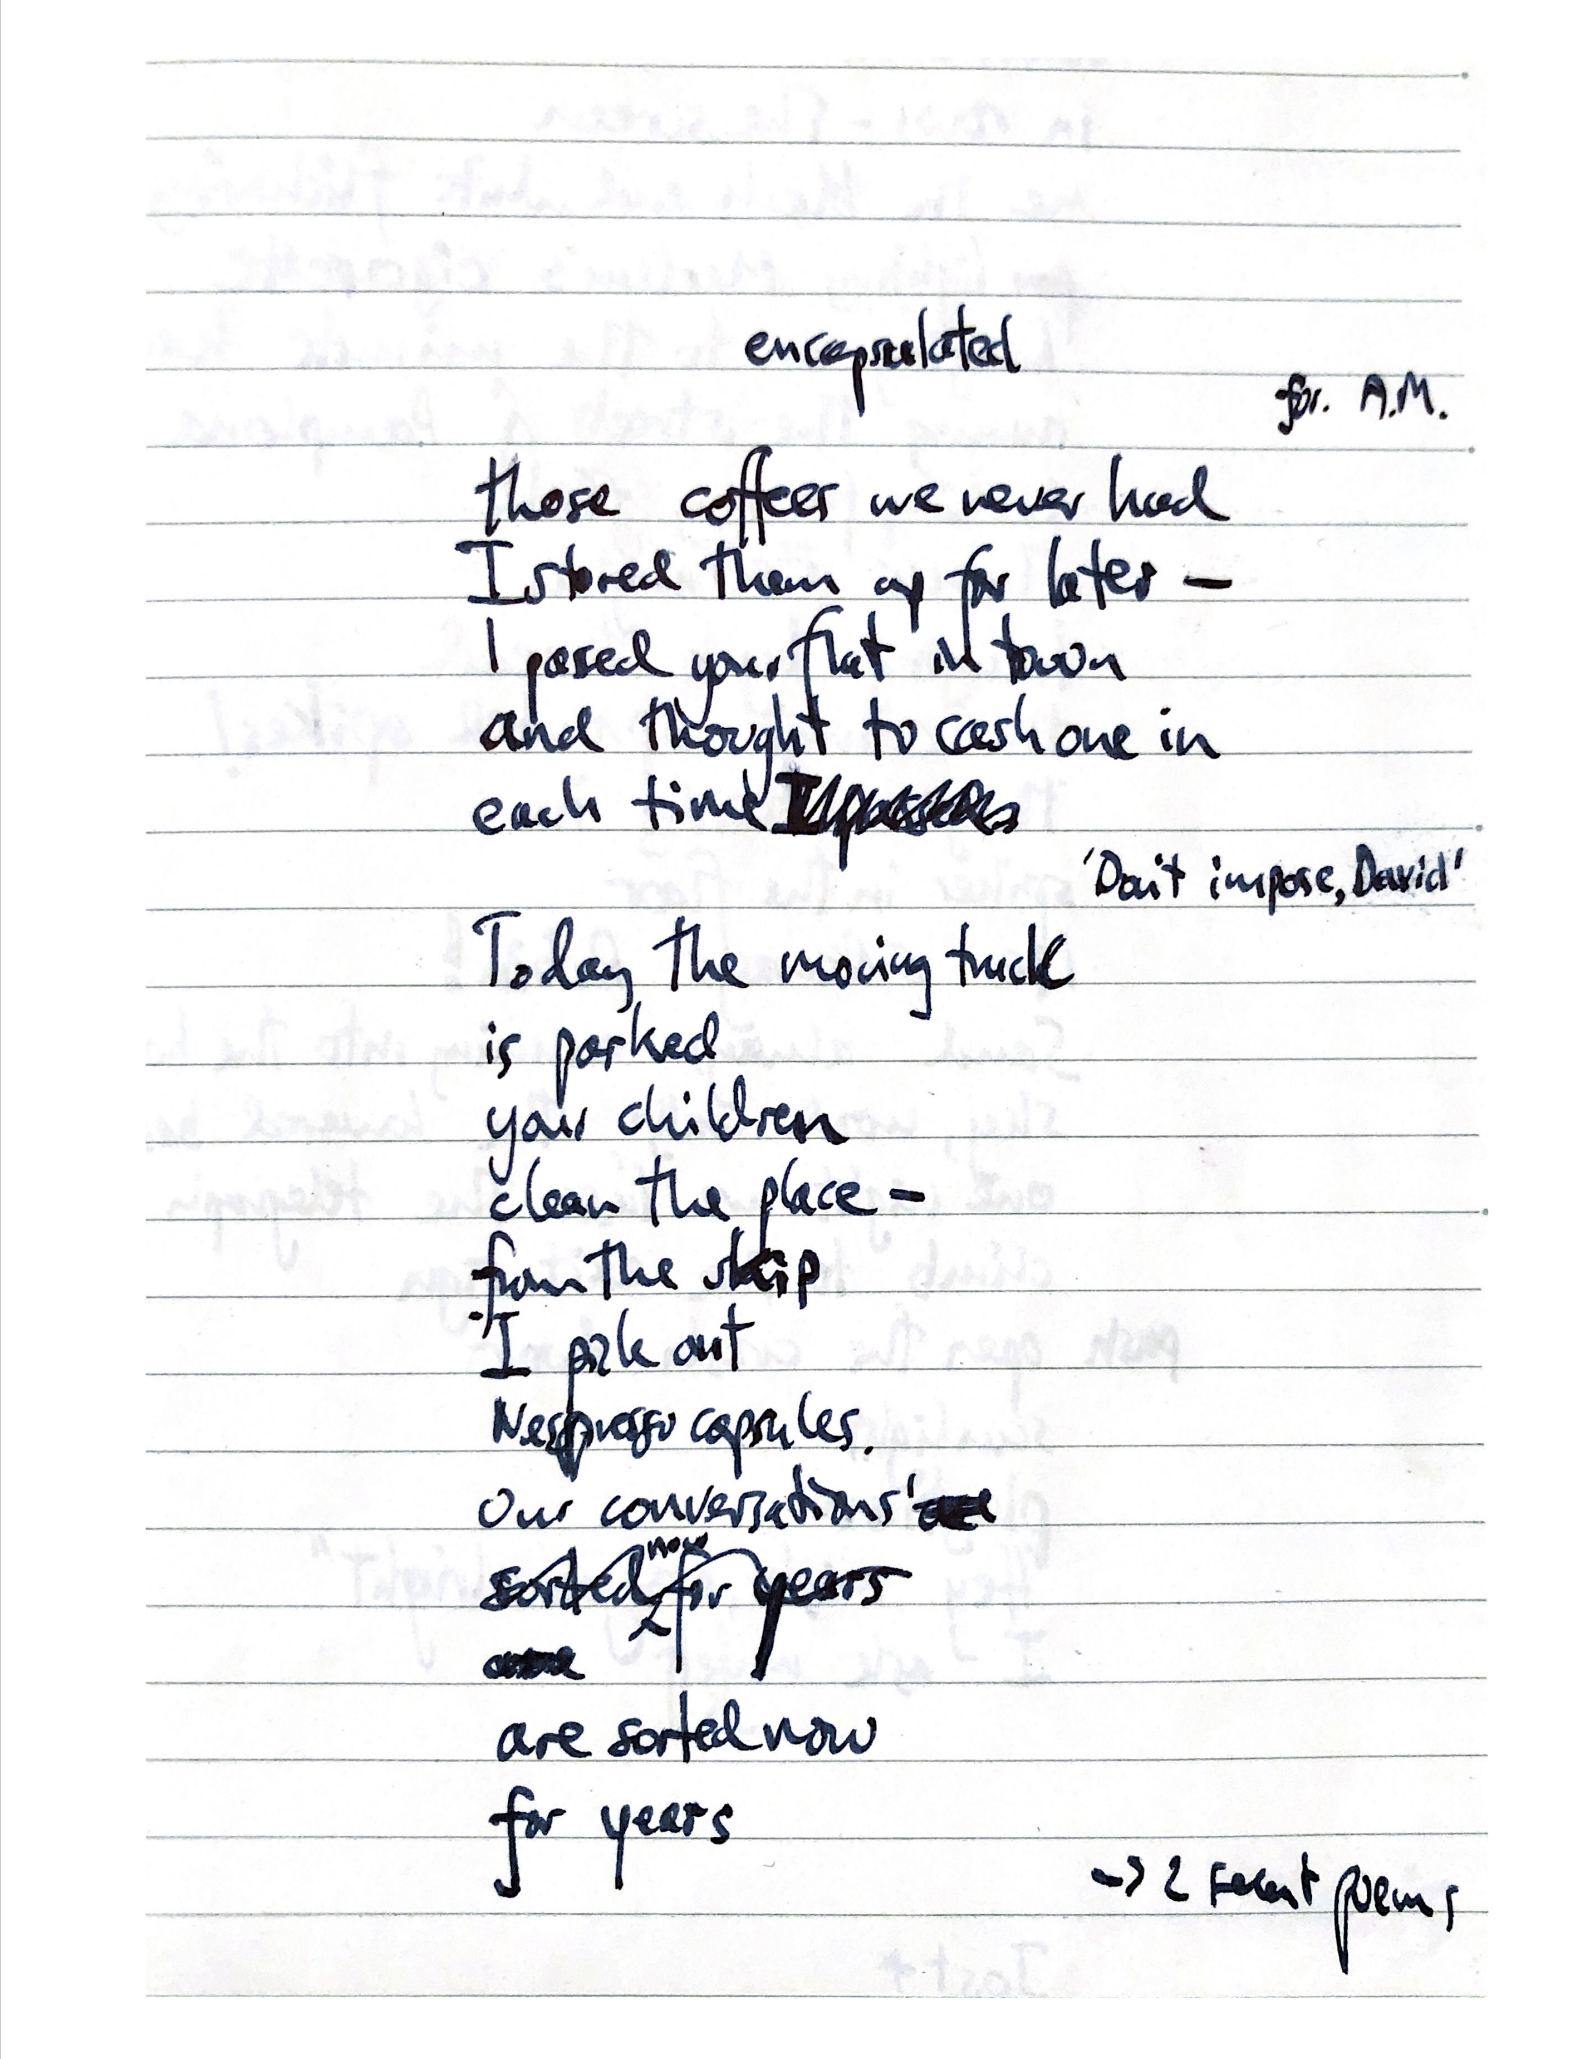 encapsulated
for. A.M.
those coffees we never had
I stored them up for later –
I pased your flat in town
and thought to cash one in
each time I passed
'Don't impose, David'
Today the moving truck
is parked
your children
clean the place –
from the skip
I pick out
Nespresso capsules.
Our conversations' are
sorted now for years
are sorted now
for years
-> 2 recent poems